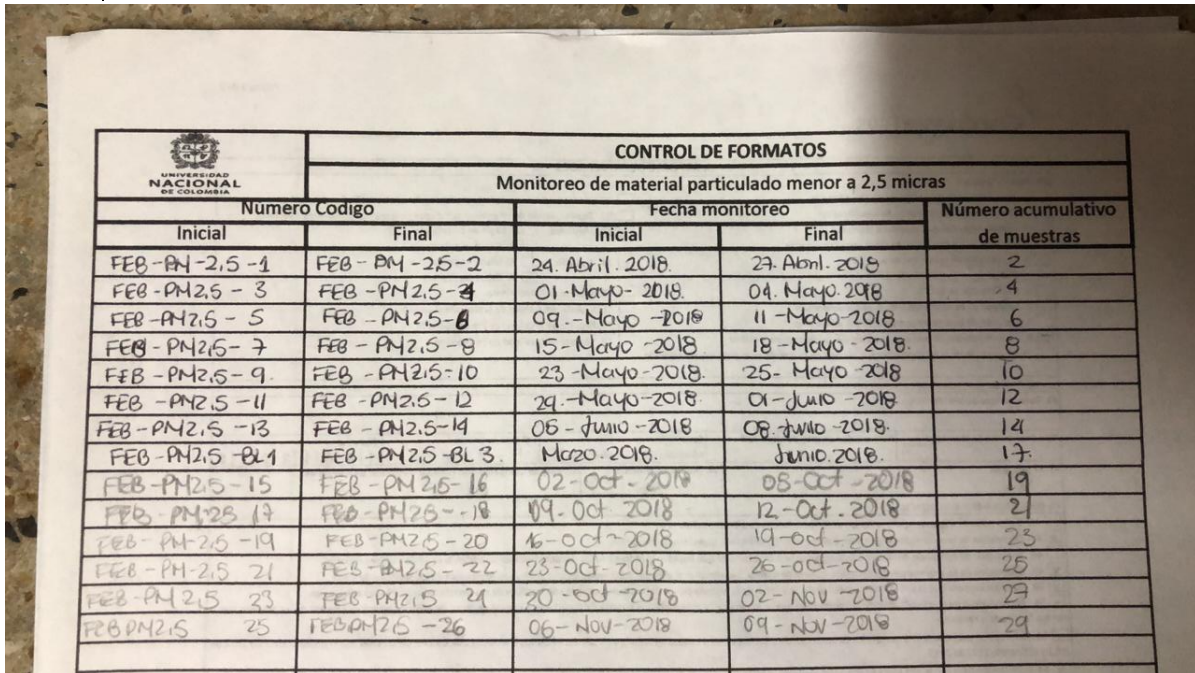 UNIVERSIDAD
NACIONAL
DE COLOMBIA
CONTROL DE FORMATOS
Monitoreo de material particulado menor a 2,5 micras
Numero Codigo Fecha monitoreo Número acumulativo de muestras
Inicial Final Inicial Final
FEB-PM-2,5-1 FEB-PM-2,5-2 24. Abril. 2018. 27. Abril. 2018 2
FEB-PM2,5-3 FEB-PM2,5-4 01-Mayo-2018. 04. Mayo. 2018 4
FEB-PM2,5-5 FEB-PM2,5-6 09.-Mayo-2018 11-Mayo-2018 6
FEB-PM2,5-7 FEB-PM2,5-8 15-Mayo-2018 18-Mayo-2018. 8
FEB-PM2,5-9. FEB-PM2,5-10 23-Mayo-2018. 25-Mayo-2018 10
FEB-PM2,5-11 FEB-PM2,5-12 29.-Mayo-2018 01-Junio-2018 12
FEB-PM2,5-13 FEB-PM2,5-14 05-Junio-2018 08. Junio-2018. 14
FEB-PM2,5-BL1 FEB-PM2,5-BL3. Marzo. 2018. Junio. 2018. 17.
FEB-PM2,5-15 FEB-PM2,5-16 02-Oct-2018 05-Oct-2018 19
FEB-PM25 17 FEB-PM25--18 09-Oct 2018 12-Oct-2018 21
FEB-PM-2,5-19 FEB-PM2,5-20 16-Oct-2018 19-Oct-2018 23
FEB-PM-2,5 21 FEB-PM2,5-22 23-Oct-2018 26-Oct-2018 25
FEB-PM2,5 23 FEB-PM2,5 24 30-Oct-2018 02-Nov-2018 27
FEBPM2,5 25 FEBPM2,5-26 06-Nov-2018 09-Nov-2018 29